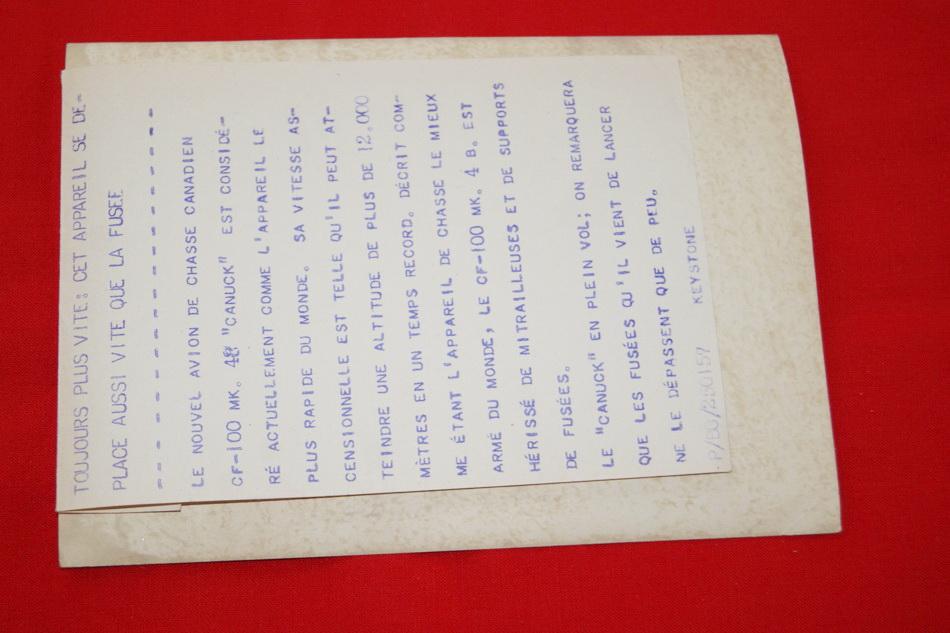 TOUJOURS PLUS VITE: CET APPAREIL SE DE-
PLACE AUSSI VITE QUE LA FUSEE
LE NOUVEL AVION DE CHASSE CANADIEN
CF-100 MK. 4B "CANUCK" EST CONSIDÉ-
RÉ ACTUELLEMENT COMME L'APPAREIL LE
PLUS RAPIDE DU MONDE. SA VITESSE AS-
CENSIONNELLE EST TELLE QU'IL PEUT AT-
TEINDRE UNE ALTITUDE DE PLUS DE 12.000
MÈTRES EN UN TEMPS RECORD. DÉCRIT COM-
ME ÉTANT L'APPAREIL DE CHASSE LE MIEUX
ARMÉ DU MONDE, LE CF-100 MK. 4 B. EST
HÉRISSÉ DE MITRAILLEUSES ET DE SUPPORTS
DE FUSÉES.
LE "CANUCK" EN PLEIN VOL; ON REMARQUERA
QUE LES FUSÉES QU'IL VIENT DE LANCER
NE LE DÉPASSENT QUE DE PEU.
KEYSTONE